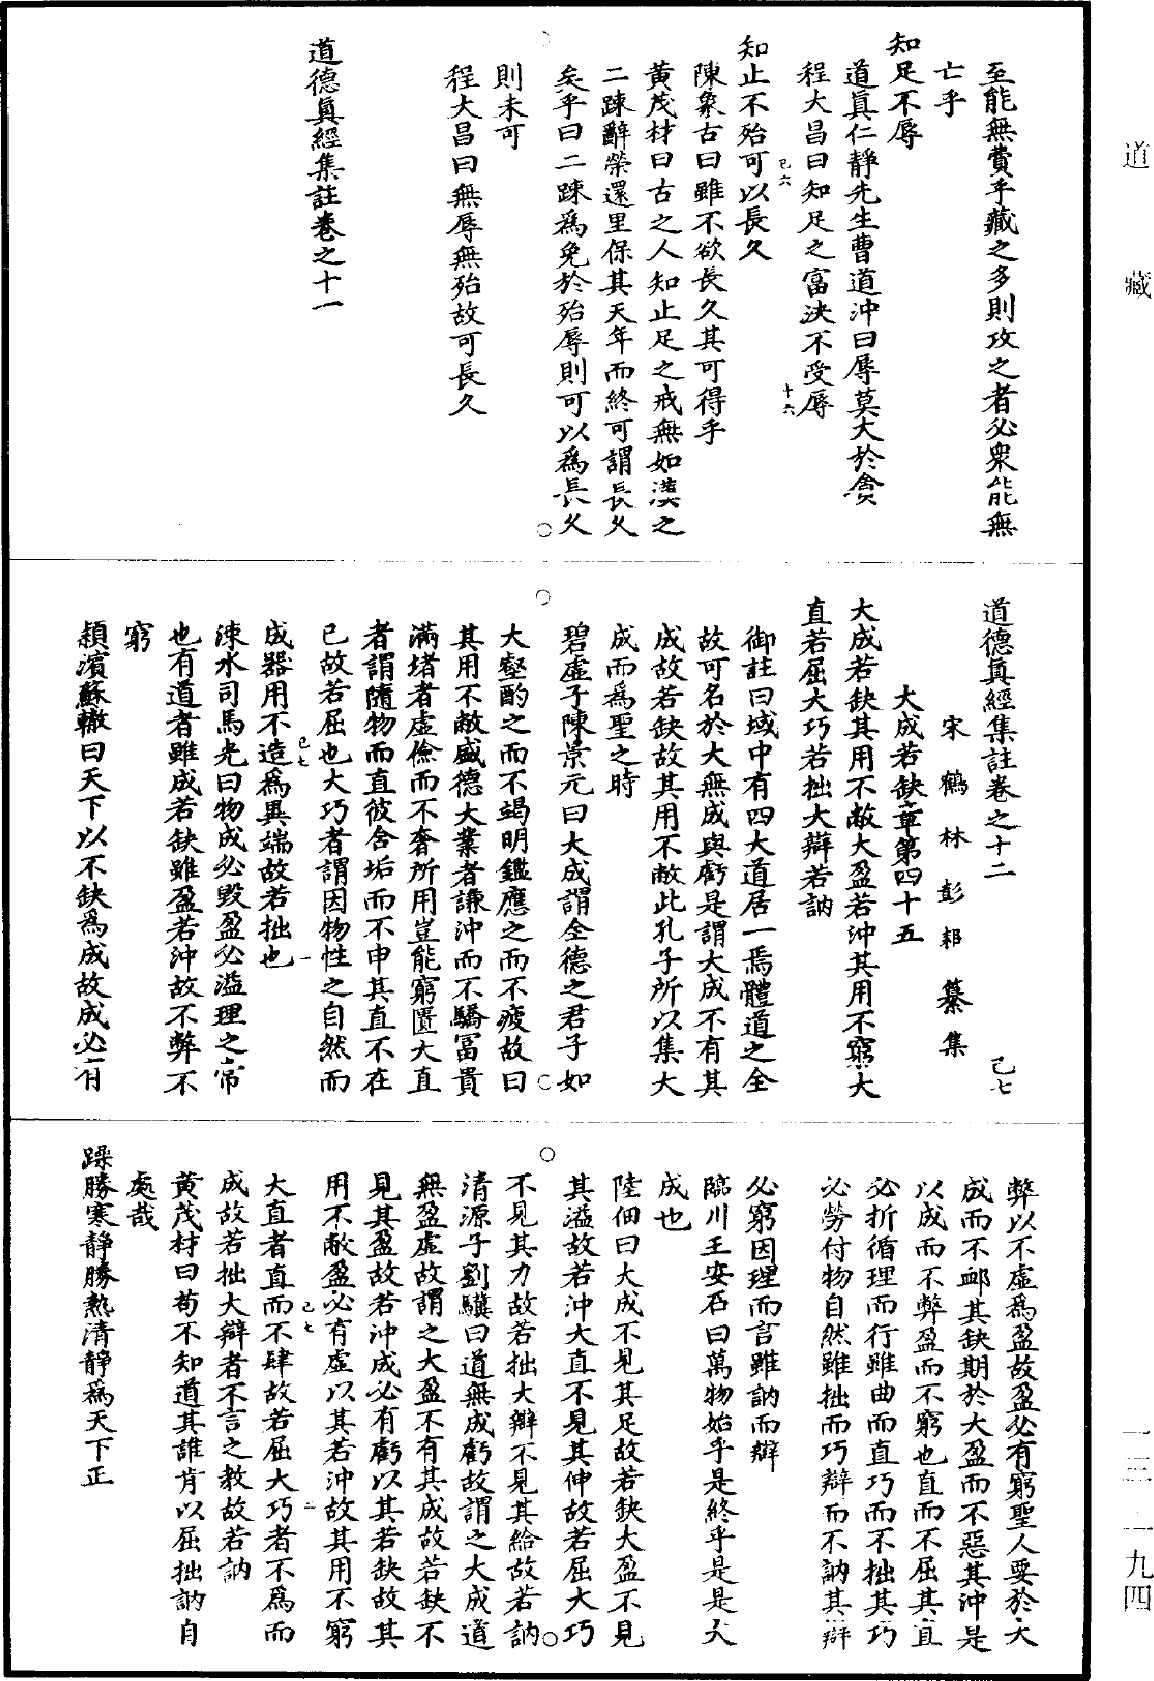 至能無費乎藏之多則攻之者必衆能無
亡乎
知足不辱
道眞仁靜先生曹道沖曰辱莫大於貪
程大昌曰知足之富決不受辱
己六
十六
知止不殆可以長久
陳象古曰雖不欲長久其可得乎
黃茂材曰古之人知止足之戒無如漢之
二踈辭榮還里保其天年而終可謂長久
矣乎曰二踈爲免於殆辱則可以爲長久
則未可
程大昌曰無辱無殆故可長久
道德眞經集註卷之十一
道德眞經集註卷之十二
己七
宋鶴林彭耜纂集
大成若缺章第四十五
大成若缺其用不敝大盈若沖其用不窮大
直若屈大巧若拙大辯若訥
御註曰域中有四大道居一焉體道之全
故可名於大無成與虧是謂大成不有其
成故若缺故其用不敝此孔子所以集大
成而爲聖之時
碧虛子陳景元曰大成謂全德之君子如
大壑酌之而不竭明鑑應之而不疲故曰
其用不敝盛德大業者謙沖而不驕富貴
滿堵者虛儉而不奢所用豈能窮匱大直
者謂隨物而直彼含垢而不申其直不在
己故若屈也大巧者謂因物性之自然而
己七
一
成器用不造爲異端故若拙也
涑水司馬光曰物成必毀盈必溢理之常
也有道者雖成若缺雖盈若沖故不弊不
窮
頴濱蘇轍曰天下以不缺爲成故成必有
弊以不虛爲盈故盈必有窮聖人要於大
成而不卹其缺期於大盈而不惡其沖是
以成而不弊盈而不窮也直而不屈其直
必折循理而行雖曲而直巧而不拙其巧
必勞付物自然雖拙而巧辯而不訥其辯
必窮因理而言雖訥而辯
臨川王安石曰萬物始乎是終乎是是大
成也
陸佃曰大成不見其足故若缺大盈不見
其溢故若沖大直不見其伸故若屈大巧
不見其力故若拙大辯不見其給故若訥
清源子劉驥曰道無成虧故謂之大成道
無盈虛故謂之大盈不有其成故若缺不
見其盈故若沖成必有虧以其若缺故其
用不敝盈必有虛以其若沖故其用不窮
己七
二
大直者直而不肆故若屈大巧者不爲而
成故若拙大辯者不言之教故若訥
黃茂材曰苟不知道其誰肯以屈拙訥自
處哉
躁勝寒靜勝熱清靜爲天下正
道藏
一三-一九四